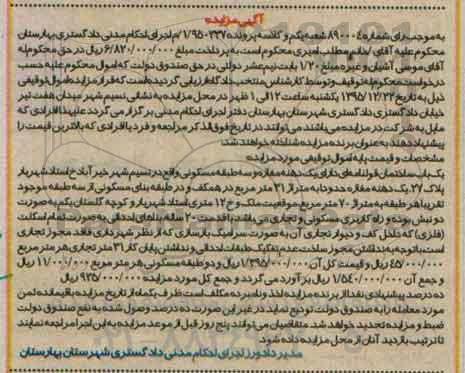 آگهی مزایده
به موجب رای شماره ۸۹۰۰۰۴ شعبه یکم و کلاسه پرونده ۹۵۰۳۳۷/۱/م اجرای احکام مدنی دادگستری بهارستان
محکوم علیه آقای/خانم مطلب امیری محکوم است به پرداخت مبلغ ۶/۸۲۰/۰۰۰/۰۰۰ ریال در حق محکوم له
آقای موسی آشیان و غیره مبلغ ۱/۲۰ بابت نیم عشر دولتی در حق صندوق دولت که اموال محکوم علیه حسب
درخواست محکوم له توقیف و توسط کارشناس منتخب دادگاه ارزیابی گردیده است که قرار مزایده اموال توقیفی
ذیل به تاریخ ۱۳۹۵/۱۲/۲۲ یکشنبه ساعت ۱۲ الی ۱ ظهر در محل مزایده به نشانی نسیم شهر میدان هفت تیر
خیابان دادگستری دادگستری شهرستان بهارستان دفتر اجرای احکام مدنی برگزار می گردد علیهذا افرادی که
مایل به شرکت در مزایده می باشند می توانند در تاریخ فوق الذکر مراجعه و فرد یا افرادی که بالاترین قیمت را
پیشنهاد دهند به عنوان برنده مزایده شناخته خواهند شد:
مشخصات و قیمت پایه اموال توقیفی مورد مزایده:
یک باب ساختمان قولنامه ای دارای یک دهنه مغازه و سه طبقه مسکونی واقع در نسیم شهر خیرآباد خ استاد شهریار
پلاک ۲۷ یک دهنه مغازه حدودا به متراژ ۳۱ متر مربع در همکف و در طبقه بنای مسکونی از سه طبقه موجود
تقریبا هر طبقه به متراژ ۷۰ متر مربع موقعیت ملک و خ ۱۲ متری استاد شهریار و کوچه گلستان یکم به صورت
دو نبش بوده و راه کاربری مسکونی و تجاری می باشد با قدمت ۲۰ ساله بناهای احداثی به صورت تمام اسکلت
(فلزی) که داخل کف و دیوار تجاری آن به صورت سرامیک بازسازی که از نظر شهرداری فاقد مجوز تجاری
است با توجه به نداشتن مجوز ساخت عدم تفکیک طبقات احداثی و نداشتن پایان کار ۳۱ متر تجاری هر متر مربع
۴۵/۰۰۰/۰۰۰ ریال و قیمت کل آن ۱/۳۹۵/۰۰۰/۰۰۰ ریال و دو طبقه مسکونی هر متر مربع ۱۱/۰۰۰/۰۰۰ ریال
و جمع آن ۱/۵۴۰/۰۰۰/۰۰۰ ریال برآورد می گردد و جمع کل مورد مزایده ۹۳۵/۰۰۰/۰۰۰ ریال
ده درصد پیشنهادی نقدا از برنده مزایده اخذ و نامبرده مکلف است ظرف یکماه از تاریخ مزایده باقیمانده ثمن
مورد معامله را به صندوق دولت تودیع نماید در غیر این صورت ده درصد وصول شده به نفع صندوق دولت
ضبط و مزایده تجدید خواهد شد. متقاضیان می توانند پنج روز قبل از موعد مزایده به این اجرا مراجعه نمایند
تا ترتیب بازدید آنان از محل مزایده داده شود.
مدیر دادورز اجرای احکام مدنی دادگستری شهرستان بهارستان